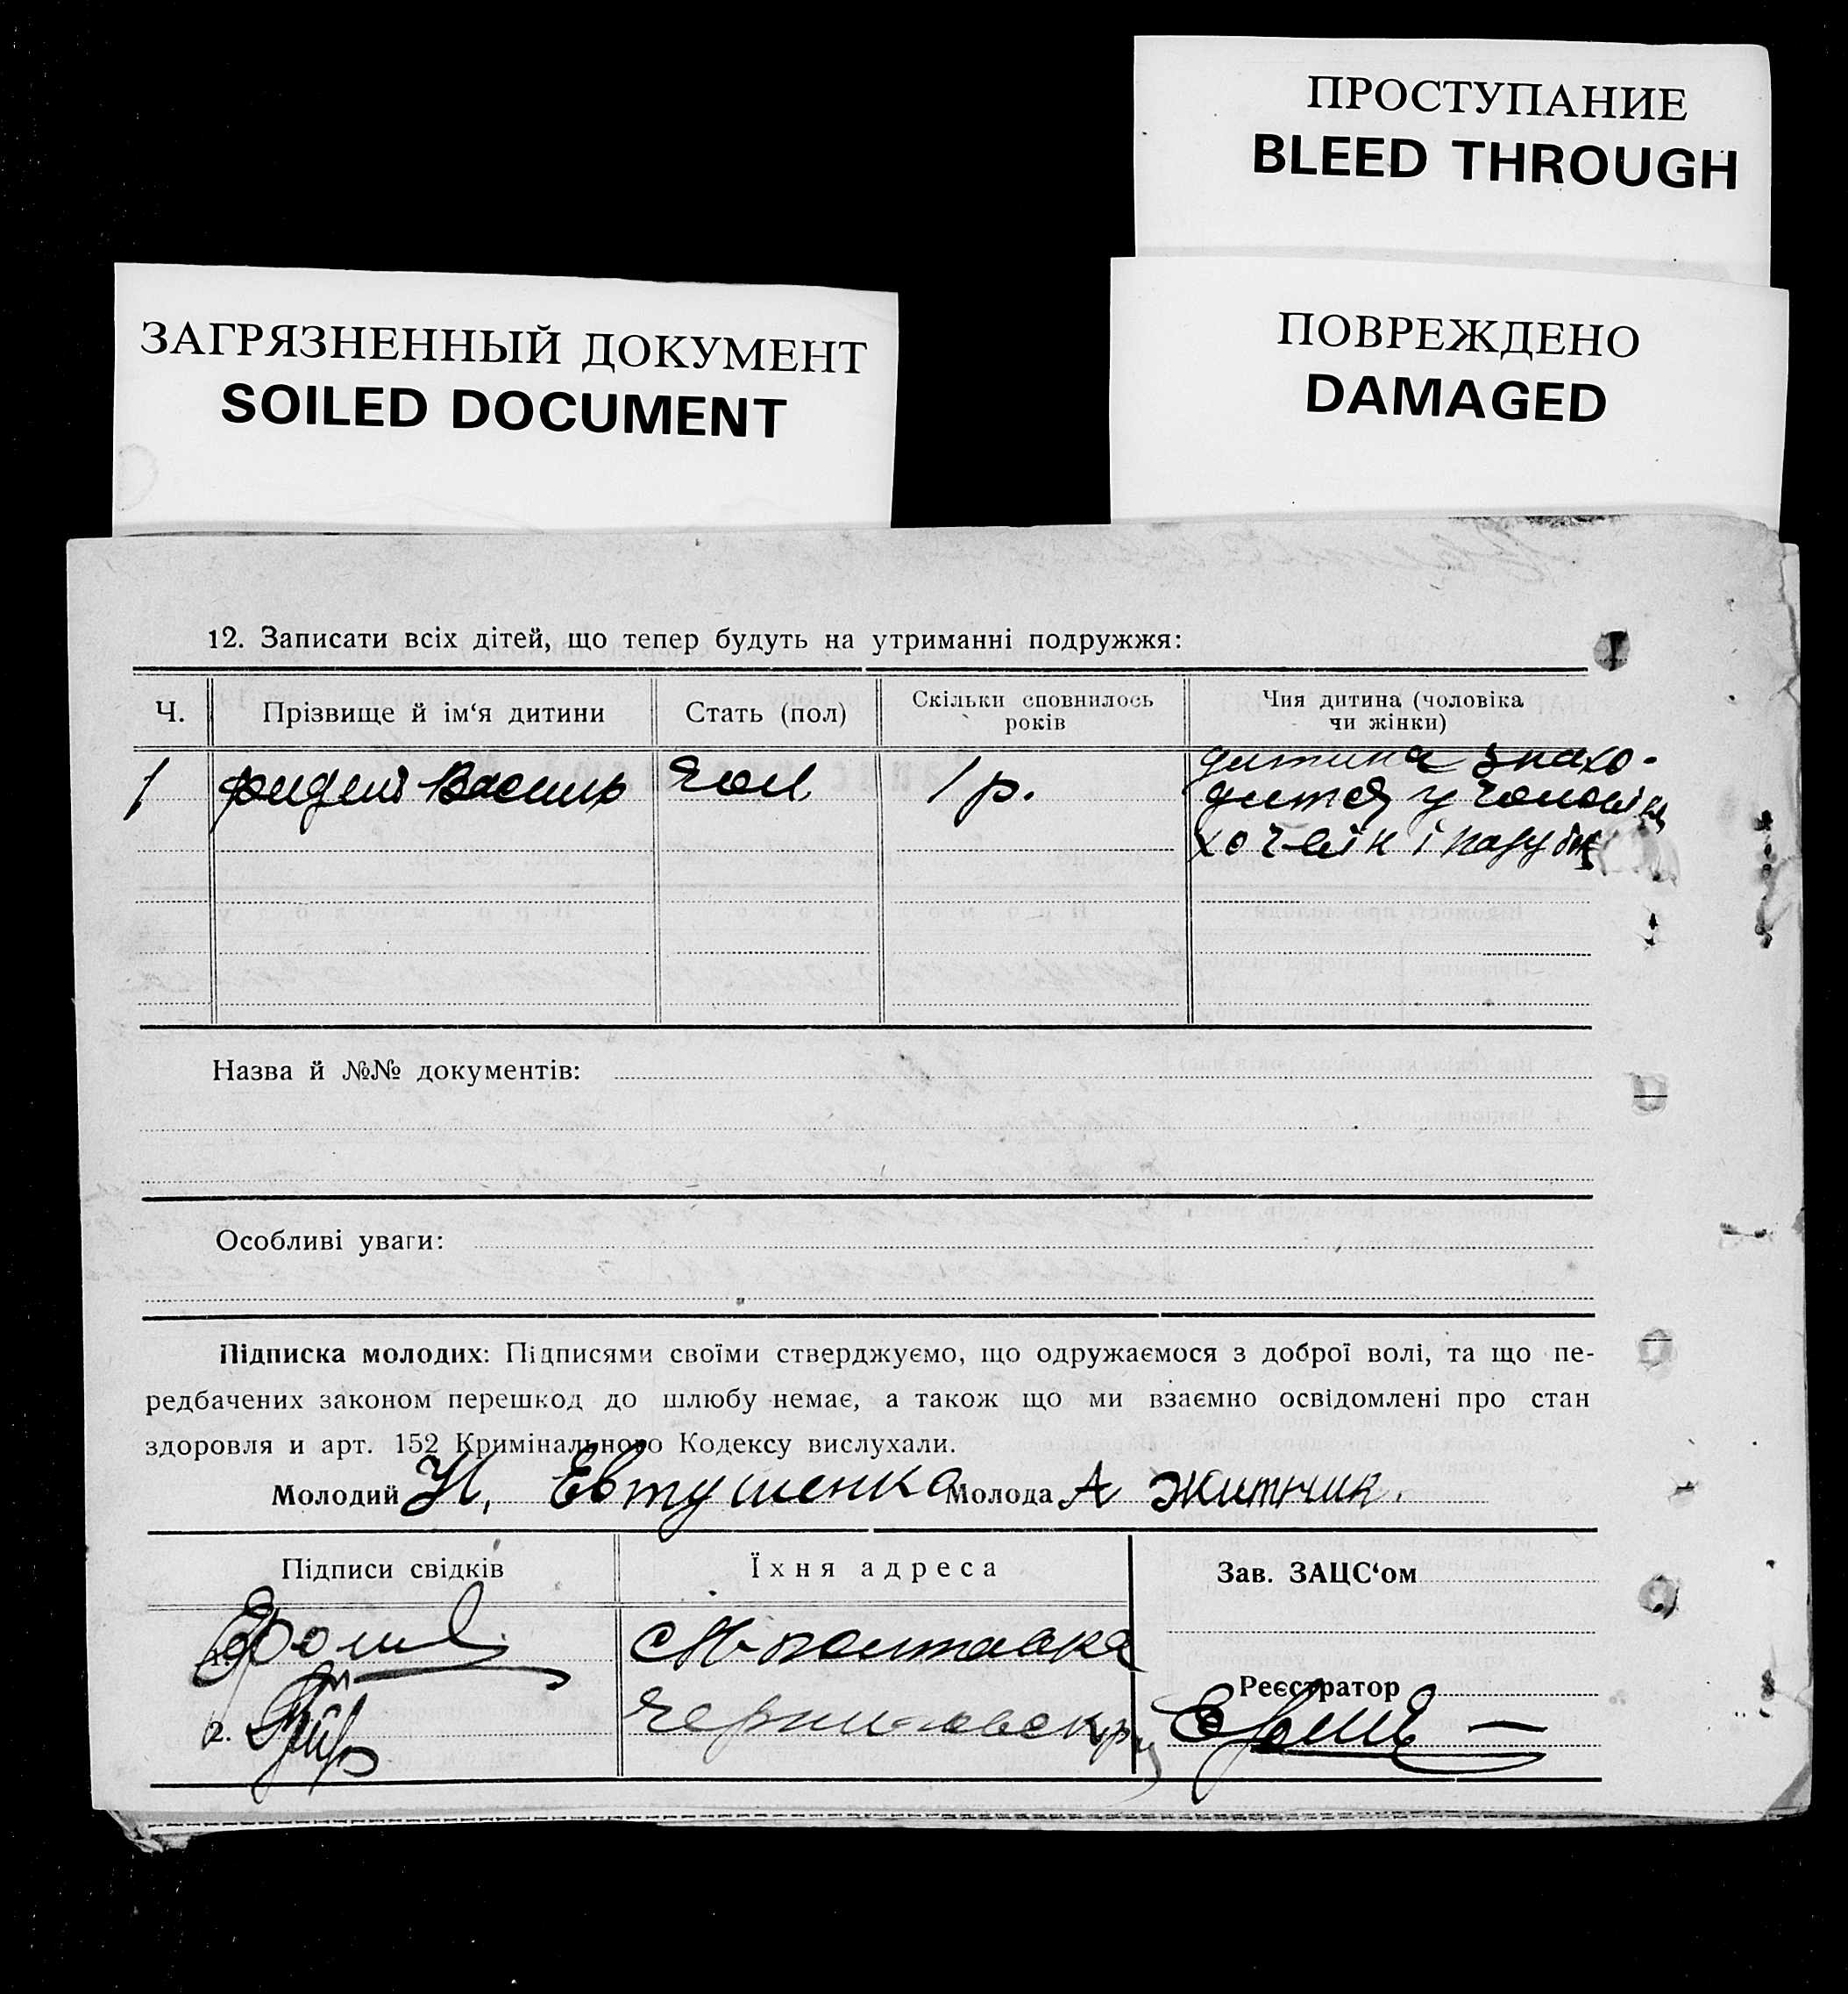 ПРОСТУПАНИЕ
BLEED THROUGH
ЗАГРЯЗНЕННЫЙ ДОКУМЕНТ
SOILED DOCUMENT
ПОВРЕЖДЕНО
DAMAGED
12. Записати всіх дітей, що тепер будуть на утриманні подружжя:
Ч.
Прізвище й ім‘я дитини
Стать (пол)
Скільки сповнилось
років
Чия дитина (чоловіка
чи жінки)
1 Василь чол 1 р. дитина знахо-
дитя у чоловіка
хоч він і парубок
Назва й №№ документів:
Особливі уваги:
Підписка молодих: Підписями своїми стверджуємо, що одружаємося з доброї волі, та що пе-
редбачених законом перешкод до шлюбу немає, а також що ми взаємно освідомлені про стан
здоровля и арт. 152 Кримінального Кодексу вислухали.
Молодий Н. Евтушенка Молода А Житник.
Підписи свідків
Їхня адреса
Зав. ЗАЦС‘ом
Реєстратор
2.